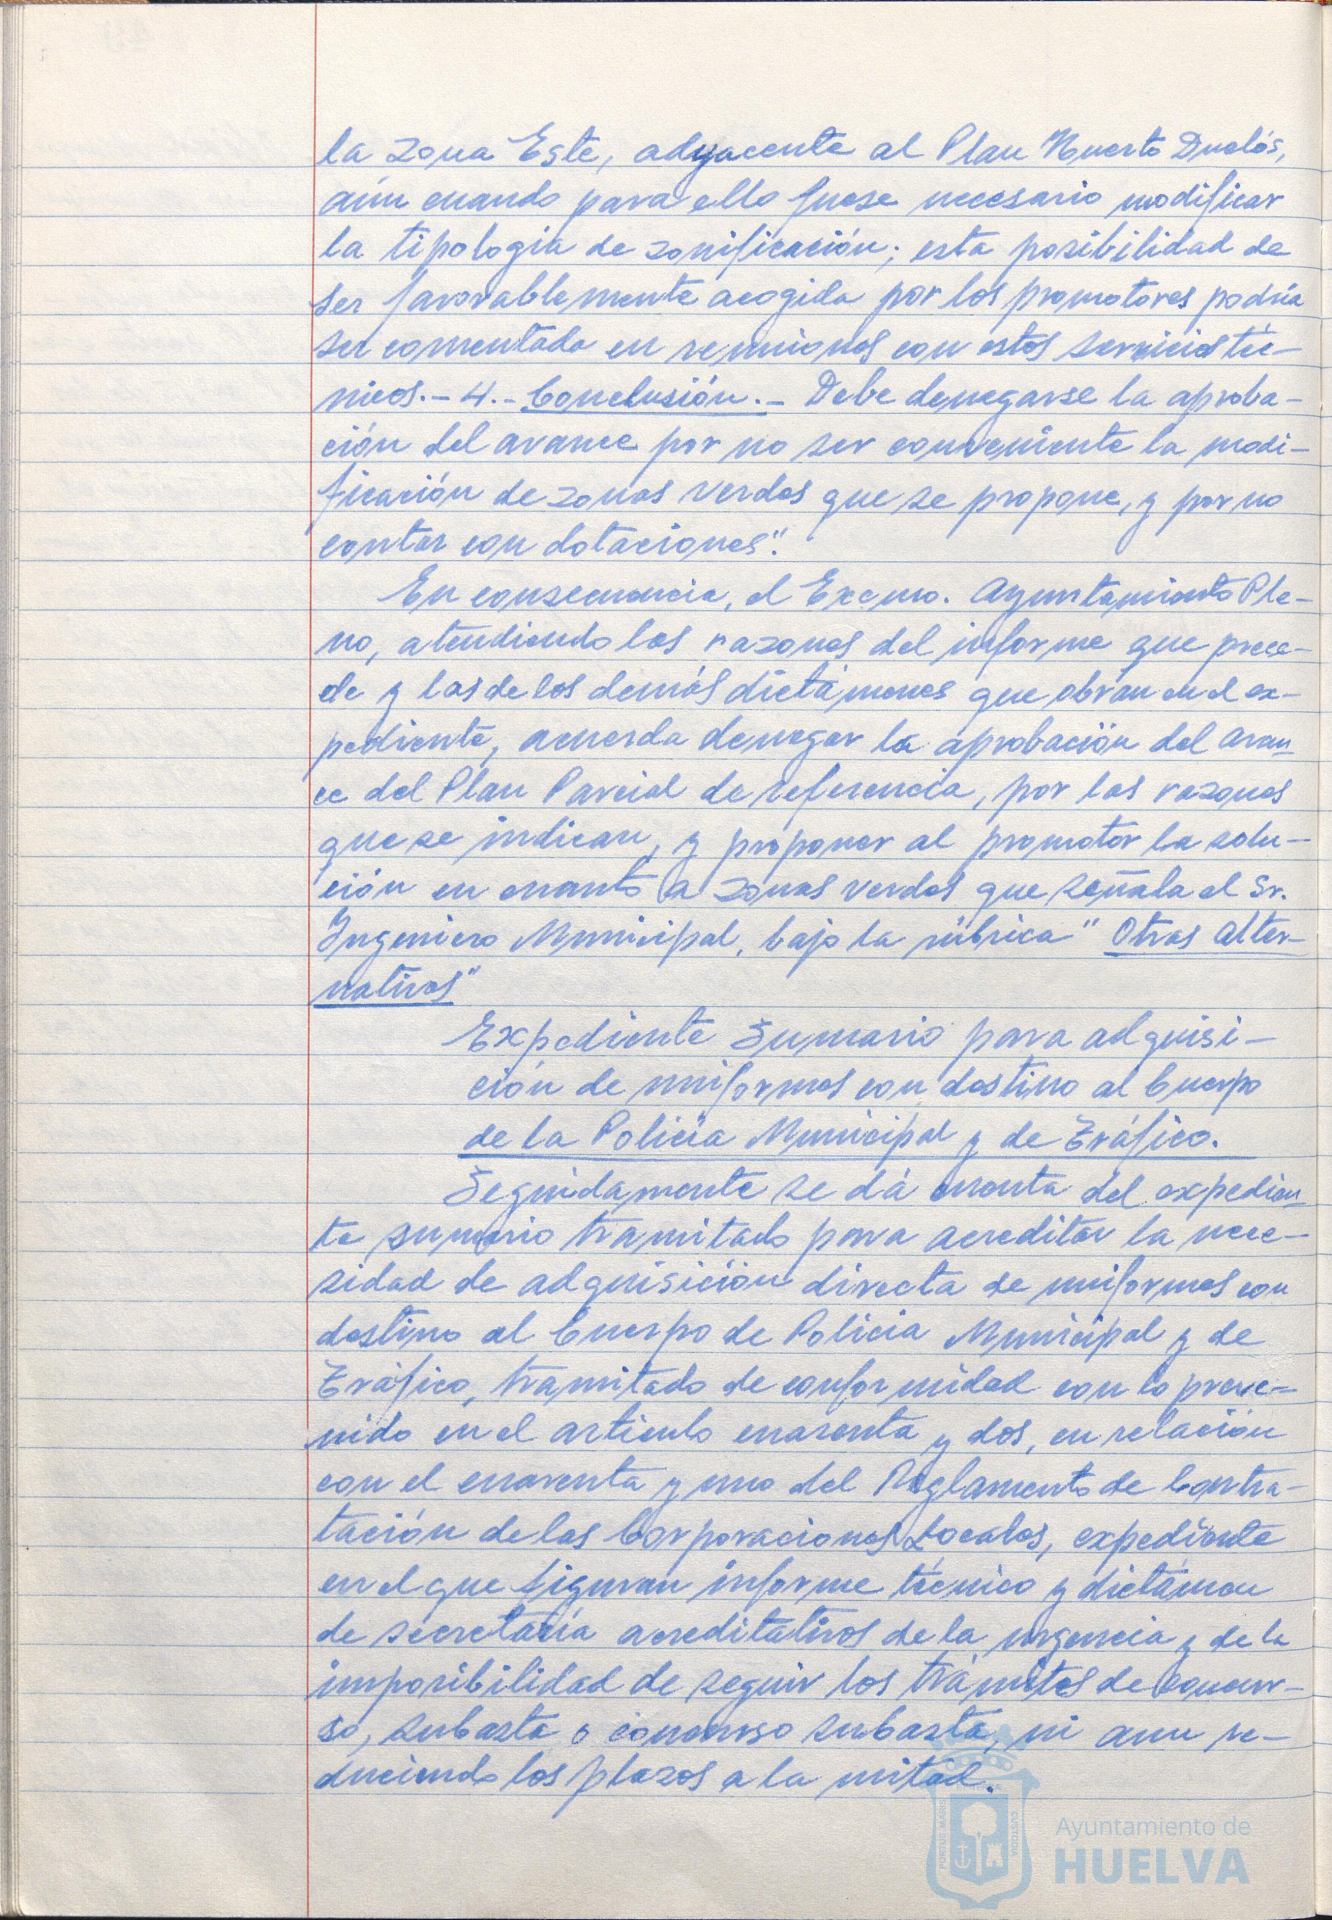 la zona Este, adyacente al Plan Huerto Duclós,
aún cuando para ello fuese necesario modificar
la tipología de zonificación; esta posibilidad de
ser favorablemente acogida por los promotores podría
ser comentada en reuniones con estos servicios téc-
nicos.- 4.- Conclusión.- Debe denegarse la aproba-
ción del avance por no ser conveniente la modi-
ficación de zonas verdes que se propone, y por no
contar con dotaciones".
En consecuencia, el Excmo. Ayuntamiento Ple-
no, atendiendo las razones del informe que prece-
de y las de los demás dictámenes que obran en el ex-
pediente, acuerda denegar la aprobación del avan-
ce del Plan Parcial de referencia, por las razones
que se indican, y proponer al promotor la solu-
ción en cuanto a zonas verdes que señala el Sr.
Ingeniero Municipal, bajo la rúbrica "Otras Alter-
nativas"
Expediente Sumario para adquisi-
ción de uniformes con destino al Cuerpo
de la Policía Municipal y de Tráfico.
Seguidamente se dá cuenta del expedien-
te sumario tramitado para acreditar la nece-
sidad de adquisición directa de uniformes con
destino al Cuerpo de Policia Municipal y de
Tráfico, tramitado de conformidad con lo preve-
nido en el artículo cuarenta y dos, en relación
con el cuarenta y uno del Reglamento de Contra-
tación de las Corporaciones Locales, expediente
en el que figuran informe técnico y dictámen
de secretaría acreditativos de la urgencia y de la
imposibilidad de seguir los trámites de concur-
so, subasta o concurso subasta, ni aun re-
duciendo los plazos a la mitad.
PORTUS MARIS
CUSTODIA
Ayuntamiento de
HUELVA